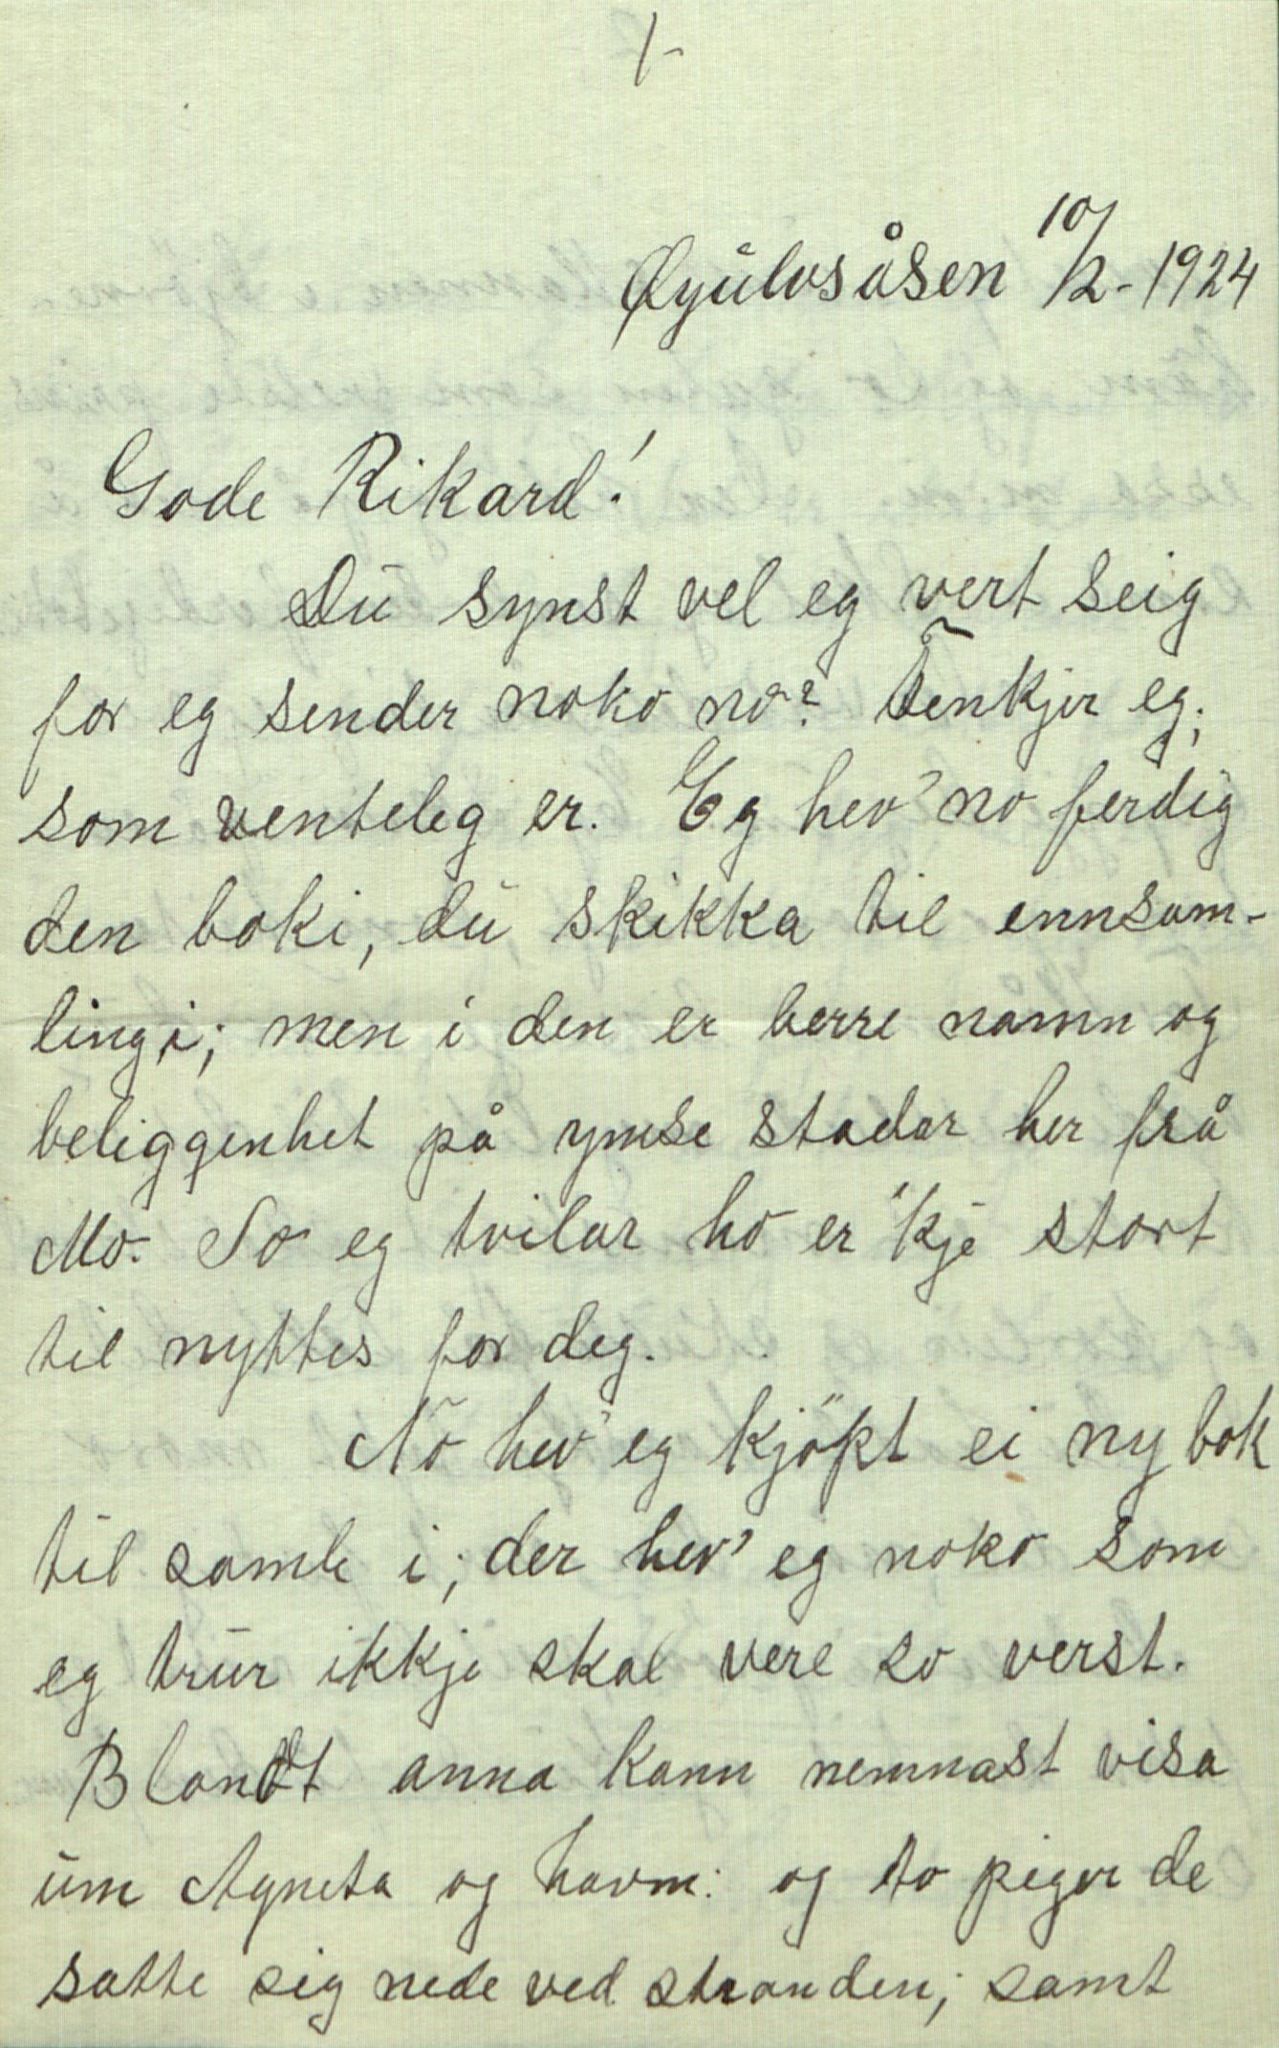 1-
Øyulvsåsen 10/2-1924
Gode Rikard!
Du synst vel eg vert seig
for eg sender noko no? Tenkjer eg;
som venteleg er. Eg hev' no ferdig
den boki, du skikka til ennsam-
lingi; men i den er berre namn og
beliggenhet på ymse stadar her frå
Mo. So eg tvilar ho er'kje stort
til nyttes for deg.
No hev' eg kjöpt ei ny bok
til samle i; der hev' eg noko som
eg trur ikkje skal vere so verst.
Blandt anna kann nemnast visa
um Agneta og havm: og to piger de
satte sig nede ved stranden; samt